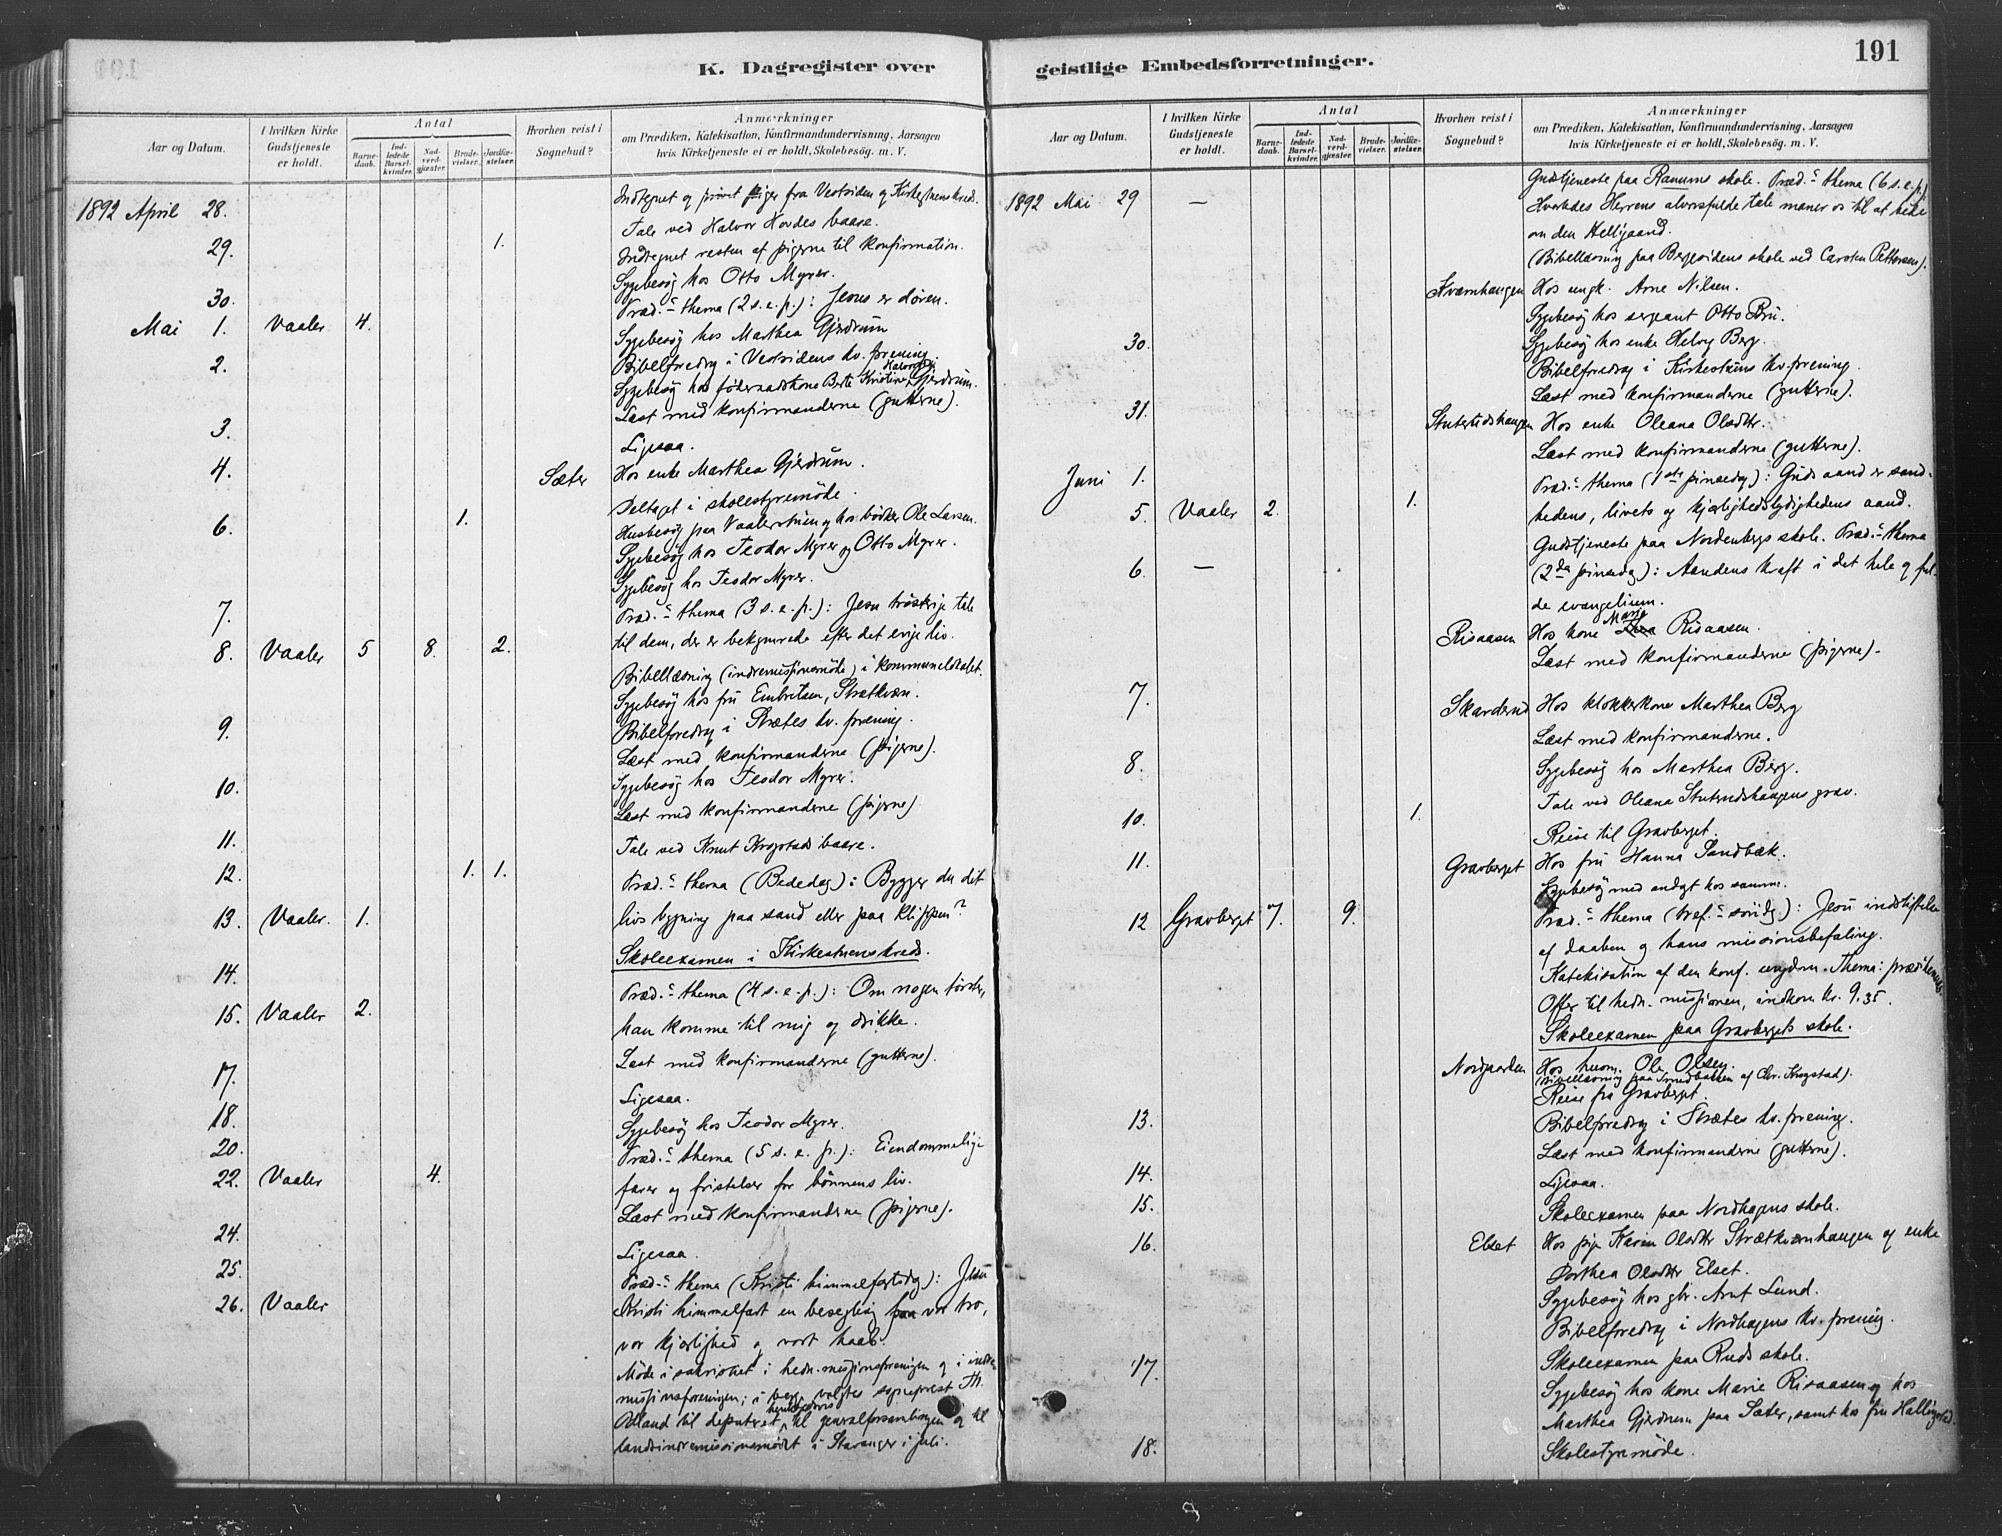 191
K. Dagregister over
geistlige Embedsforretninger.
Aar og Datum.
I hvilken Kirke Gudstjeneste er holdt.
Antal
Barnedaab.
Indledede Barselkvinder.
Nadverdgjæster.
Brudevielser.
Jordfæstelser.
Hvorhen reist i Sognebud?
Anmærkninger
om Prædiken, Katekisation, Konfirmandundervisning, Aarsagen
hvis Kirketjeneste ei er holdt, Skolebesøg. m. V.
1892 April 28. Indtegnet og prøvet piger fra Vestsiden og Kirkestuens kreds.
Tale ved Halvor Hovdes baare.
29. 1. Indtegnet resten af pigerne til konfirmation.
Sygebesøg hos Otto Myrer.
30. Præd.s thema (2 s. e. p.): Jesus er døren.
Mai 1. Vaaler 4. Sygebesøg hos Marthea Gjerdrum
2. Bibelforedrag i Vestsidens kv. forening.
Sygebesøg hos føderaadskone Berte Kristine Halvorsdtr. Gjerdrum.
Læst med konfirmanderne (gutterne).
3. Ligesaa.
4. Sæter Hos enke Marthea Gjerdrum.
Deltaget i skolestyremøde.
6. 1. Husbesøg paa Vaalerstuen og hos bødker Ole Larsen.
Sygebesøg hos Teodor Myrer og Otto Myrer.
Sygebesøg hos Teodor Myrer.
7. Præd.s thema (3 s. e. p.): Jesu trøsterige tale
8. Vaaler 5 8. 2. til dem, der er bekymrede efter det evige liv.
Bibellæsning (indremissionsmøde) i kommunelokalet.
Sygebesøg hos fru Embretsen, Strætkvæn.
9. Bibelforedrag i Strætes kv. forening.
Læst med konfirmanderne (pigerne).
10. Sygebesøg hos Teodor Myrer.
Læst med konfirmanderne (pigerne).
11. Tale ved Knut Krogstads baare.
12. 1. 1. Præd.s thema (Bededag): Bygger du dit
13. Vaaler. 1. livs bygning paa sand eller paa klippen?
Skoleexamen i Kirkestuens kreds.
14. Præd.s thema (4 s. e. p.): Om nogen tørster,
15. Vaaler 2. han komme til mig og drikke.
Læst med konfirmanderne (gutterne).
17. Ligesaa.
18. Sygebesøg hos Teodor Myrer.
20. Præd.s thema (5 s. e. p.): Eiendommelige
22. Vaaler 4. farer og fristelser for bønnens liv.
Læst med konfirmanderne (pigerne).
24. Ligesaa.
25. Præd.s thema (Kristi himmelfartsdag): Jesu
26. Vaaler Kristi himmelfart en besegling paa vor tro,
vor kjærlighed og vort haab.
Møde i sakristiet i hedn. missionsforeningen og i indre
missionsforeningen; i begge valgtes sogneprest Th.
Odland til deputeret henholdsvis til generalforsamlingen og til
landsindremissionsmødet i Stavanger i juli.
Aar og Datum.
I hvilken Kirke Gudstjeneste er holdt.
Antal
Barnedaab.
Indledede Barselkvinder.
Nadverdgjæster.
Brudevielser.
Jordfæstelser.
Hvorhen reist i Sognebud?
Anmærkninger
om Prædiken, Katekisation, Konfirmandundervisning, Aarsagen
hvis Kirketjeneste ei er holdt, Skolebesøg. m. V.
Gudstjeneste paa Ranums skole. Præd.s thema (6 s. e. p.)
1892 Mai 29 — Hvorledes Herrens alvorsfulde tale maner os til at bede
om den Helligaand.
(Bibellæsning paa Bergesidens skole ved Carsten Pettersen).
Kvernhaugen Hos ungk. Arne Nilsen.
Sygebesøg hos sergeant Otto Bru.
30. Sygebesøg hos enke Helvig Berg.
Bibelforedrag i Kirkestuens kv. forening.
Læst med konfirmanderne (gutterne).
31. Stuterudshaugen Hos enke Oleana Olsdtr.
Læst med konfirmanderne (gutterne).
Juni 1. Præd.s thema (1ste pinsedag): Guds aand er sand-
5. Vaaler 2. 1. hedens, livets og kjærlighedslydighedens aand.
Gudstjeneste paa Nordenbergs skole. Præd.s thema
6. — (2den pinsedag): Aandens kraft i det hele og ful-
de evangelium.
Risaasen Hos kone Marie Risaasen.
Læst med konfirmanderne (pigerne).
7. Skarderud Hos klokkerkone Marthea Berg
Læst med konfirmanderne.
8. Sygebesøg hos Marthea Berg.
Tale ved Oleana Stuterudshaugens grav.
10. 1. Reise til Gravberget.
11. Gravberget Hos fru Hanna Sandbæk.
Sygebesøg med andagt hos samme.
12 Gravberget 7. 9. Præd.s thema (tref.s søndg): Jesu indstiftelse
af daaben og hans missionsbefaling.
Katekisation af den konf. ungdom. Thema: præd.s themaet.
Offer til hedn. missionen, indkom kr. 9.35.
Skoleexamen paa Gravbergets skole.
Nordgarden Hos husm. Ole Olsen.
(Bibellæsning paa Smedbakken af Chr. Krogstad).
Reise fra Gravberget.
13. Bibelforedrag i Strætes kv. forening.
Læst med konfirmanderne (gutterne).
14. Ligesaa.
15. Skoleexamen paa Nordhagens skole.
16. Elset Hos pige Karen Olsdtr Strætkvernhaugen og enke
Dorthea Olsdtr Elset.
Sygebesøg hos gbr. Arnt Lund.
Bibelforedrag i Nordhagens kv. forening.
17. Skoleexamen paa Ruds skole.
Sygebesøg hos kone Marie Risaasen og hos
Marthea Gjerdrum paa Sæter, samt hos fru Hallingstad.
18. Skolestyremøde.